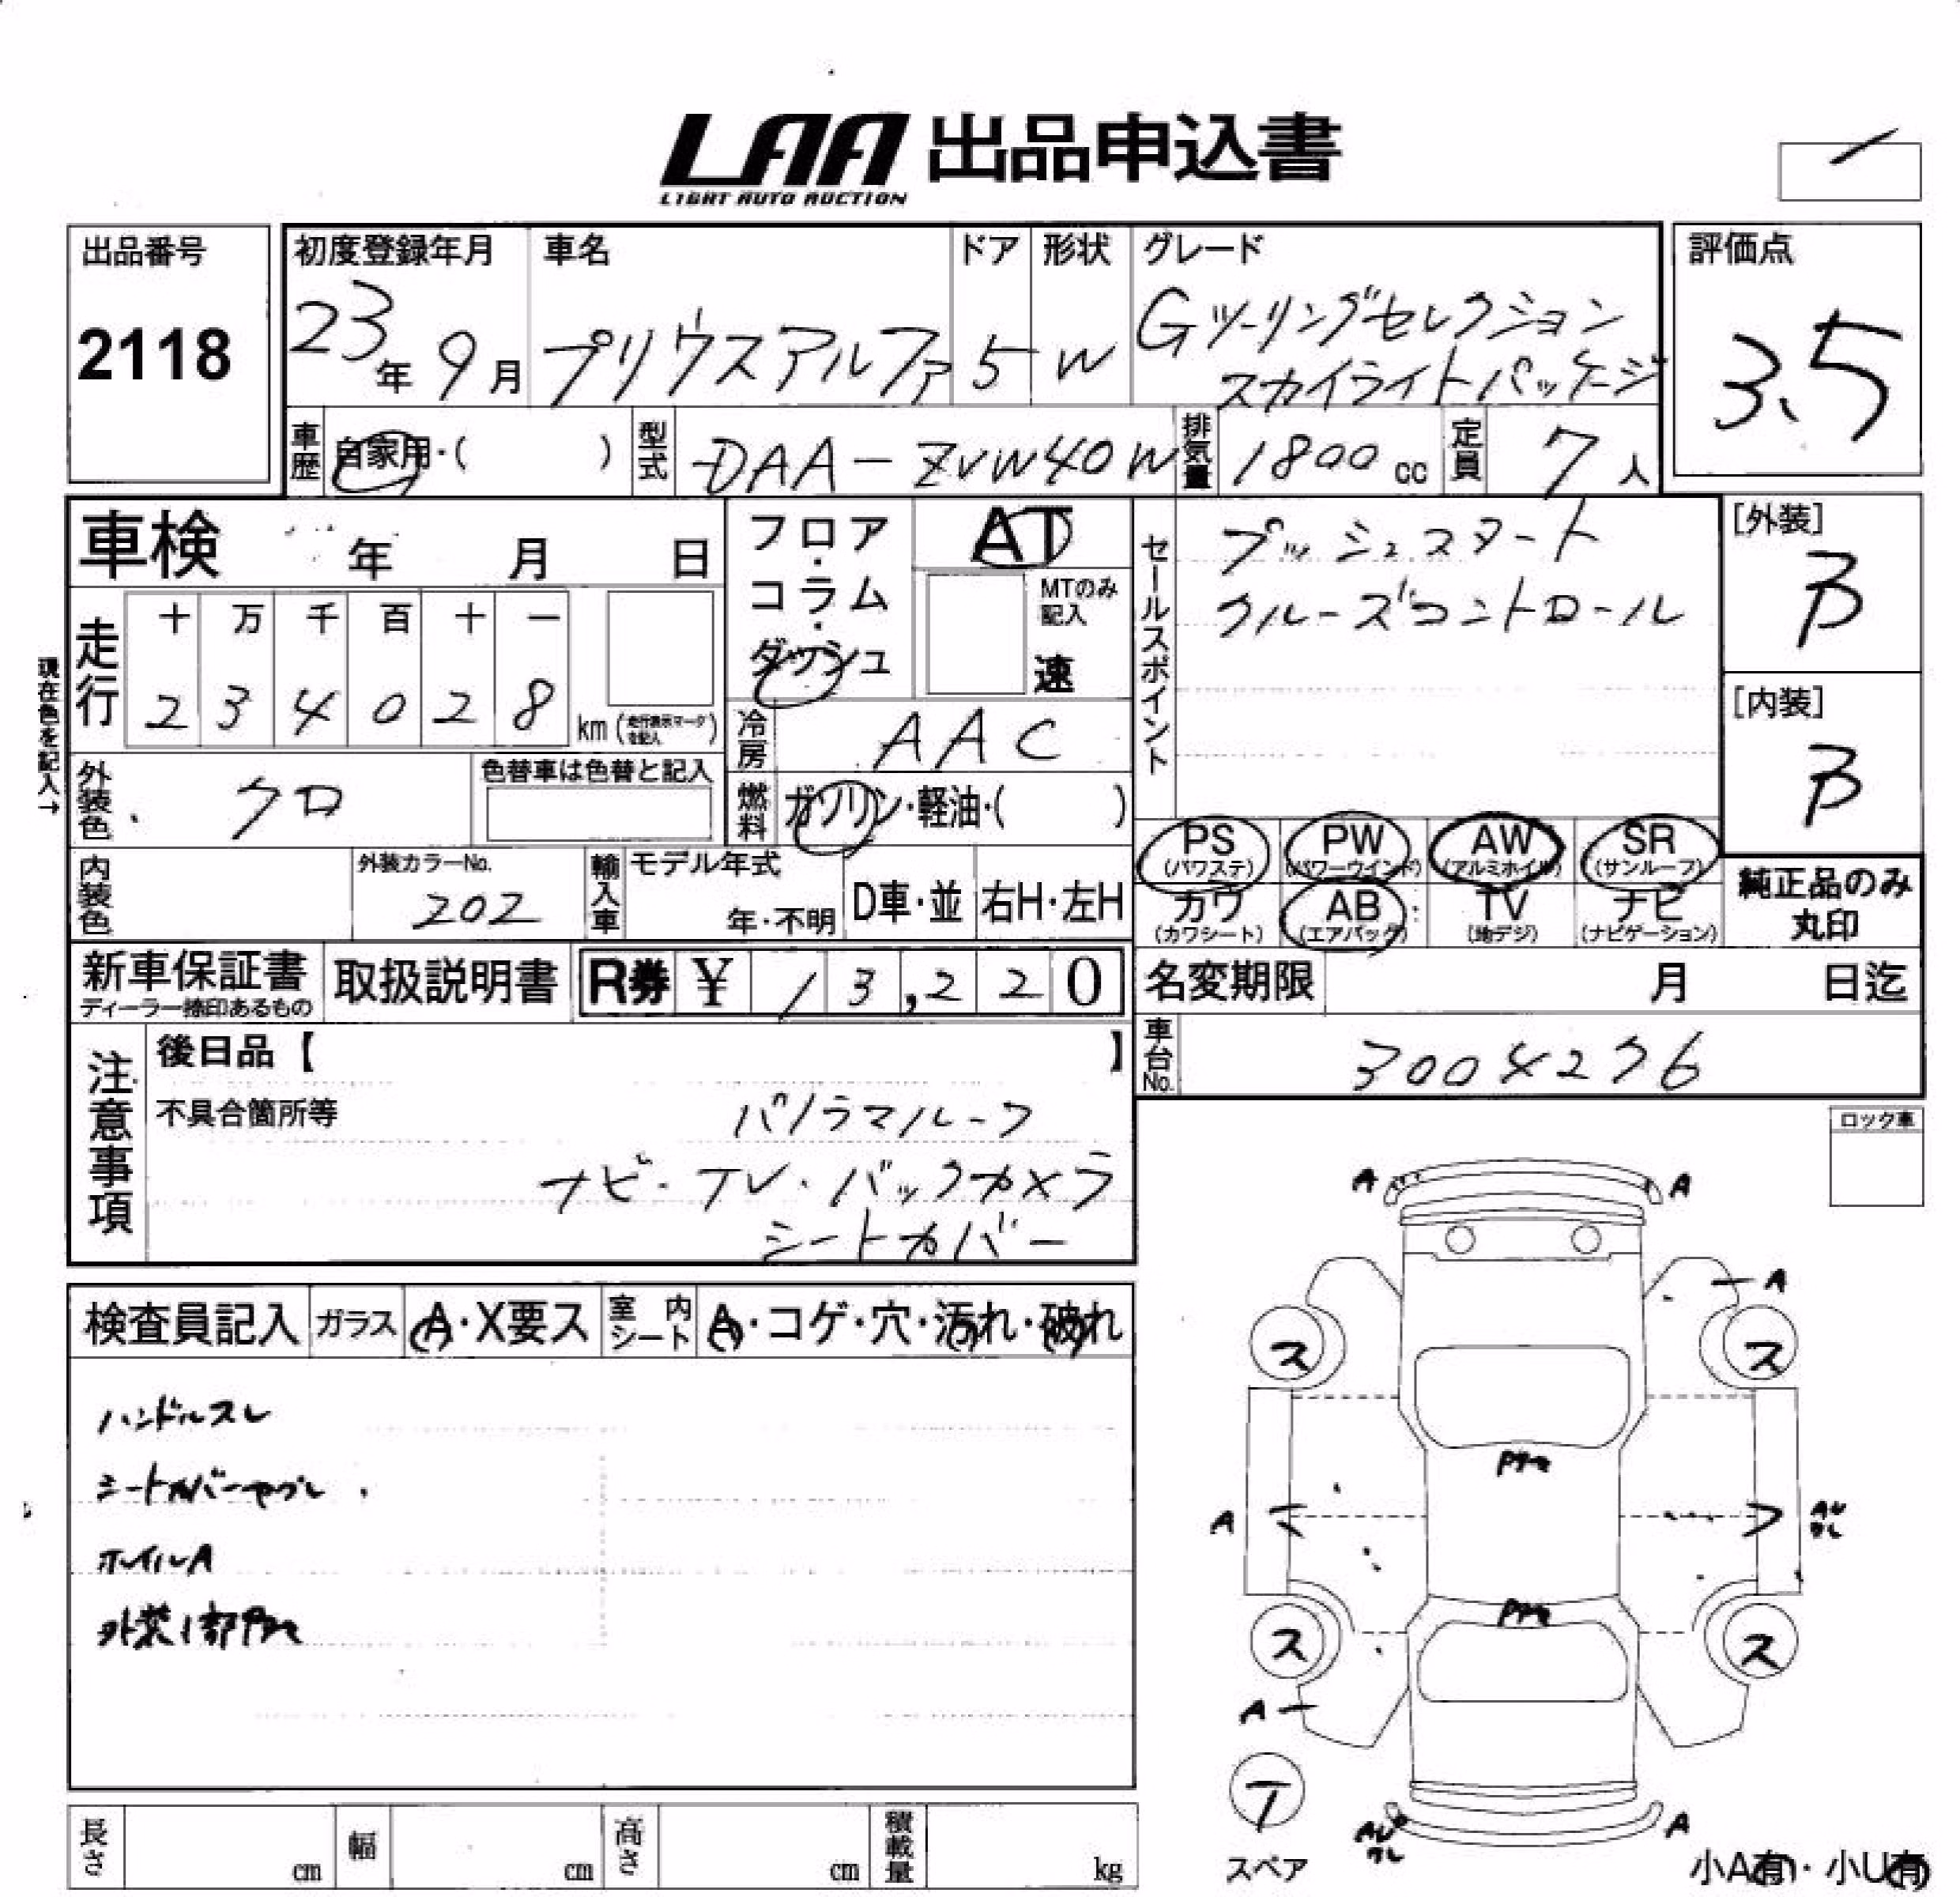 LAA 出品申込書
LIGHT AUTO AUCTION
出品番号
2118
初度登録年月
23年9月
車名
プリウスアルファ
ドア
5
形状
W
グレード
Gツーリングセレクション
スカイライトパッケージ
評価点
3.5
車歴
自家用・( )
型式
DAA-ZVW40W
排気量
1800cc
定員
7人
車検 年 月 日
フロア・コラム・ダッシュ
AT
MTのみ記入
速
セールスポイント
プッシュスタート
クルーズコントロール
[外装]
B
[内装]
B
現在色を記入→
走行
十 万 千 百 十 一
2 3 4 0 2 8
km (走行表示マークを記入)
冷房
AAC
外装色
クロ
色替車は色替と記入
燃料
ガソリン・軽油・( )
PS
(パワステ)
PW
(パワーウインド)
AW
(アルミホイル)
SR
(サンルーフ)
カワ
(カワシート)
AB
(エアバック)
TV
(地デジ)
ナビ
(ナビゲーション)
純正品のみ
丸印
内装色
外装カラーNo.
202
輸入車
モデル年式
年・不明
D車・並
右H・左H
新車保証書
ディーラー捺印あるもの
取扱説明書
R券 ¥ 13,220
名変期限 月 日迄
車台No.
3004276
注意事項
後日品【 】
不具合箇所等
パノラマルーフ
ナビ・TV・バックカメラ
シートカバー
ロック車
検査員記入
ガラス
A・X要ス
室内シート
A・コゲ・穴・汚れ・破れ
ハンドルスレ
シートカバーヤブレ
ホイルA
外装1部
A
A
A
ス
ス
A
AU
ワレ
ス
ス
A
T
スペア
AU
ワレ
A
小A有・小U有
長さ cm
幅 cm
高さ cm
積載量 kg